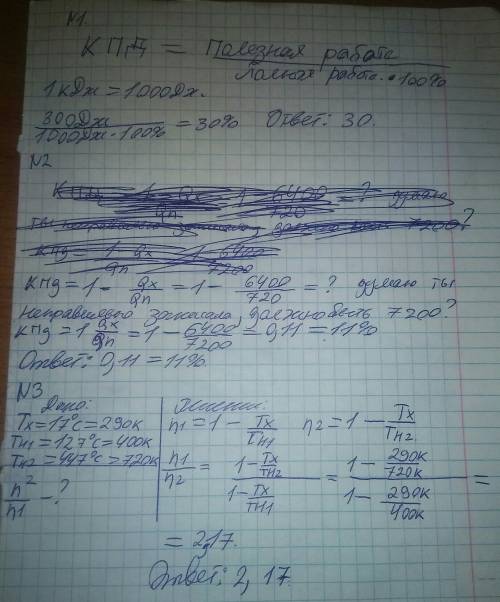 N1.
КПД = Полезная работа
Полная работа · 100%
1кДж = 1000Дж.
300Дж / 1000Дж · 100% = 30% Ответ: 30.
N2
КПД = 1 - Qх / Qн = 1 - 6400 / 720 = ? думаю ты
неправильно записала, должно быть 7200?
КПД = 1 Qх / Qн = 1 - 6400 / 7200 = 0,11 = 11%
Ответ: 0,11 = 11%.
N3
Дано:
Tх = 17°C = 290К
Tн1 = 127°C = 400К
Tн2 = 447°C = 720К
n2 / n1 - ?
Решение:
n1 = 1 - Tх / Tн1 n2 = 1 - Tх / Tн2
n1 / n2 = 1 - Tх / Tн2 / 1 - Tх / Tн1 = 1 - 290К / 720К / 1 - 290К / 400К =
= 2,17.
Ответ: 2,17.